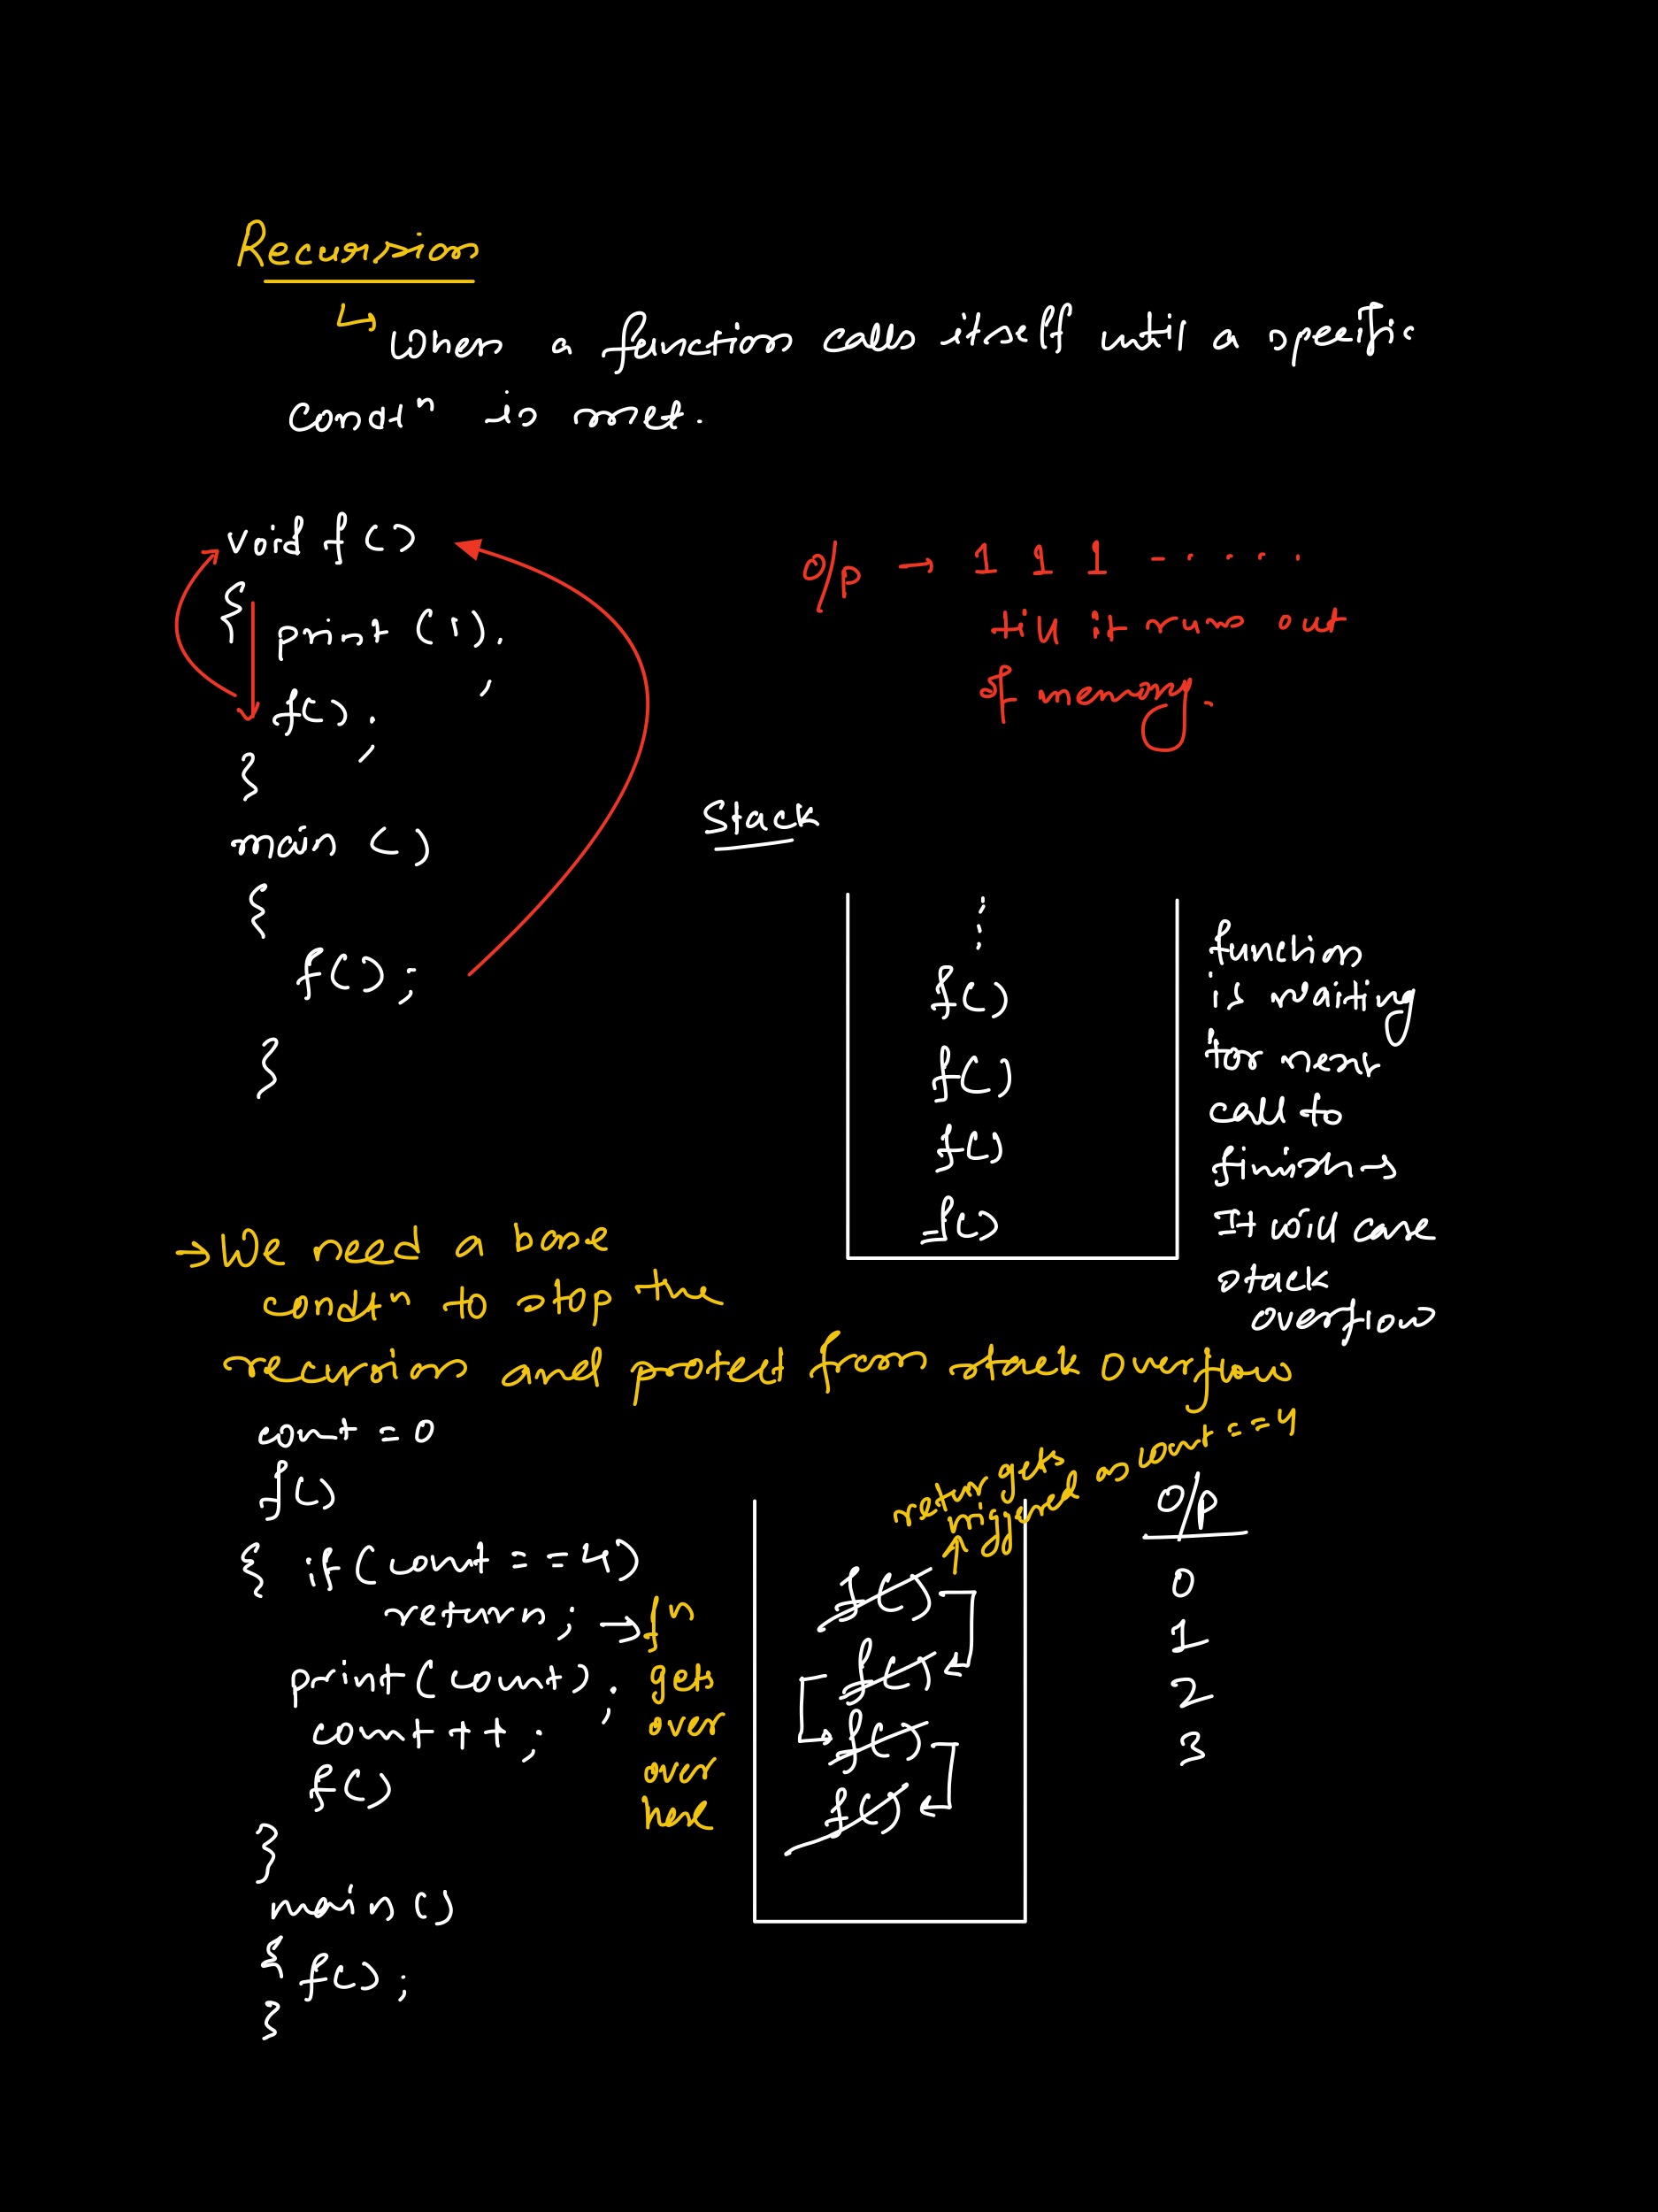 Recursion
↳ When a function calls itself until a specific
condtⁿ is met.
void f()
{
print (1);
f();
}
main ()
{
f();
}
O/p → 1 1 1 - . . . . .
till it runs out
of memory.
Stack
f()
f()
f()
f()
function
is waiting
for next
call to
finish →
It will case
stack
overflow
→ We need a base
condtⁿ to stop the
recursion and protect from stack overflow
count = 0
f()
{ if (count == 4)
return; → fⁿ
gets
over
over
here
print(count);
count++;
f()
}
main()
{ f();
}
return gets
triggered as count == 4
f()
f()
f()
f()
O/p
0
1
2
3